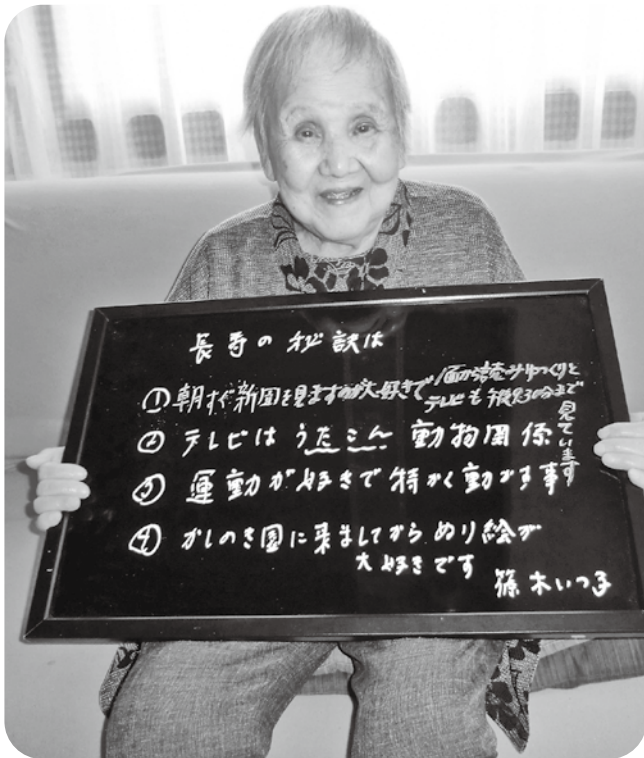 長寿の秘訣は
①朝すぐ新聞を見ますのが大好きで 一面から読みゆっくりと
テレビも 見ています
②テレビは うたこん 動物関係
③運動が好きで 特がく動かす事
④かしのき園に来ましてから ぬり絵が
大好きです
篠木いつ子